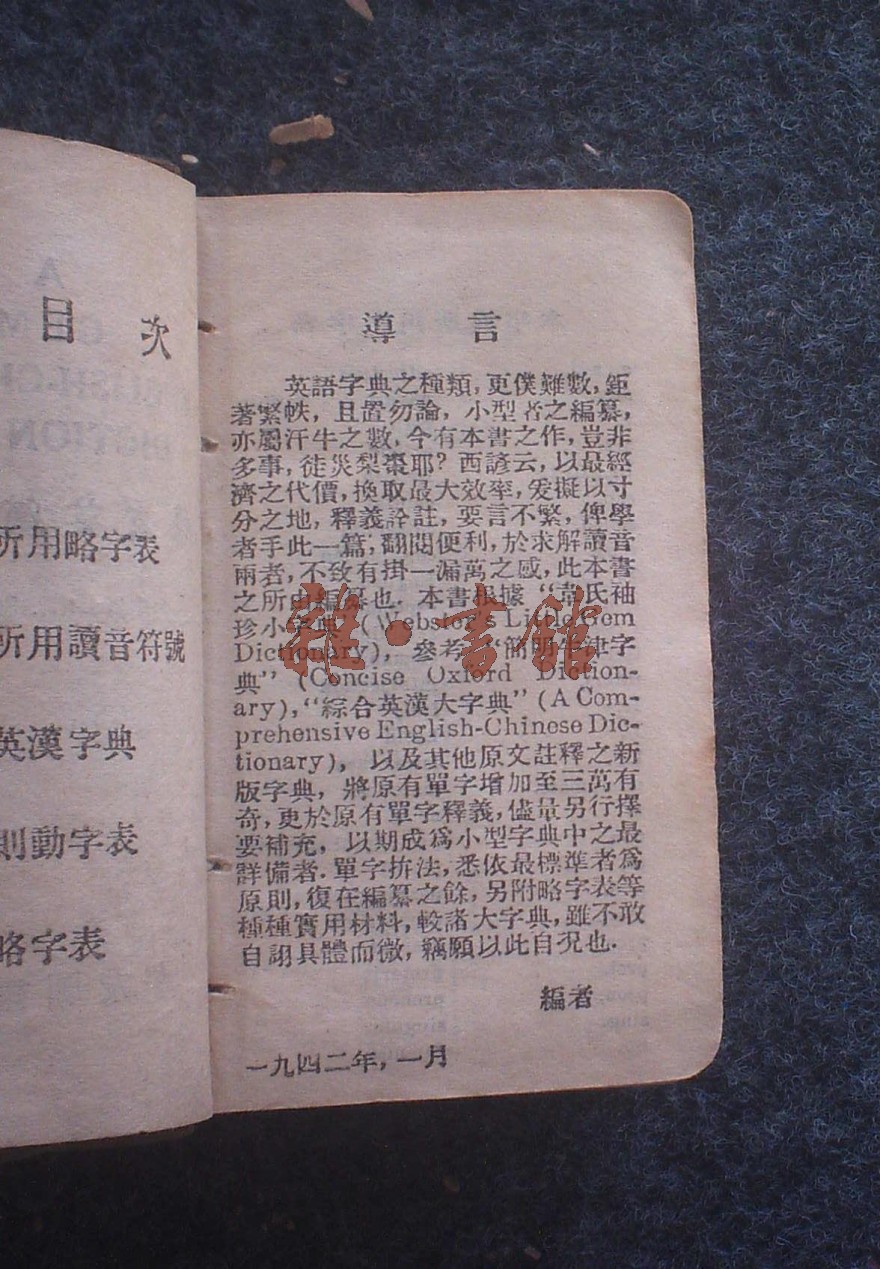 目次
所用略字表
所用讀音符號
英漢字典
則動字表
略字表
導言
英語字典之種類,更僕難數,鉅
著繁帙,且置勿論,小型者之編纂,
亦屬汗牛之數,今有本書之作,豈非
多事,徒災梨棗耶?西諺云,以最經
濟之代價,換取最大效率,爰擬以寸
分之地,釋義詮註,要言不繁,俾學
者手此一篇,翻閱便利,於求解讀音
兩者,不致有掛一漏萬之感,此本書
之所由編纂也.本書根據“韋氏袖
珍小字典”(Webster's Little Gem
Dictionary),參考“簡明牛津字
典”(Concise Oxford Diction-
ary),“綜合英漢大字典”(A Com-
prehensive English-Chinese Dic-
tionary),以及其他原文註釋之新
版字典,將原有單字增加至三萬有
奇,更於原有單字釋義,儘量另行擇
要補充,以期成爲小型字典中之最
詳備者.單字拚法,悉依最標準者爲
原則,復在編纂之餘,另附略字表等
種種實用材料,較諸大字典,雖不敢
自詡具體而微,竊願以此自況也.
編者
一九四二年,一月
雜·書館